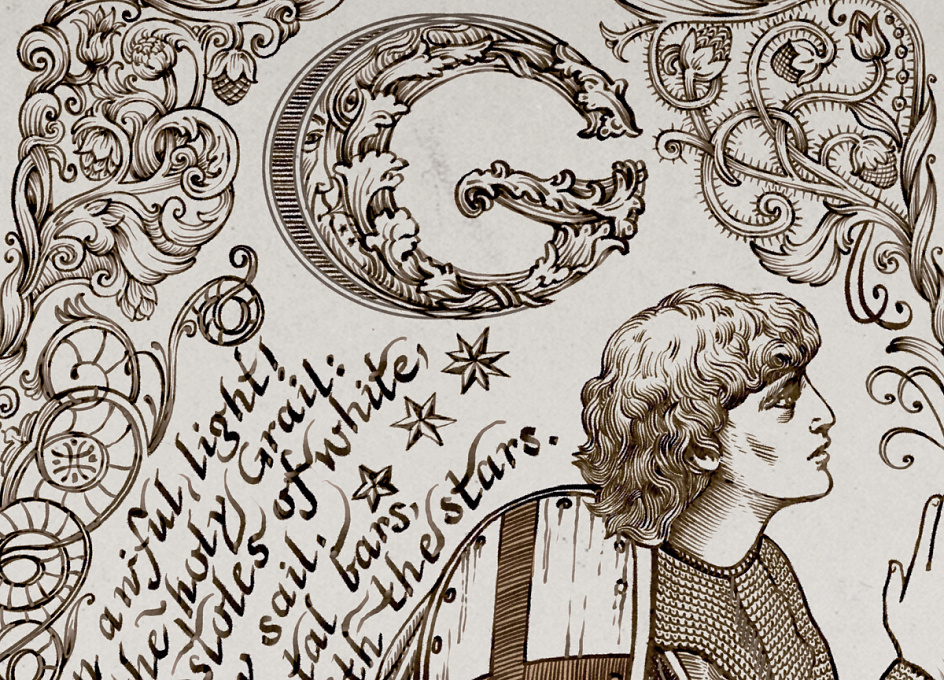 G
awful light!
he holy Grail:
stoles of white,
y sail.
tal bars,
th the stars.